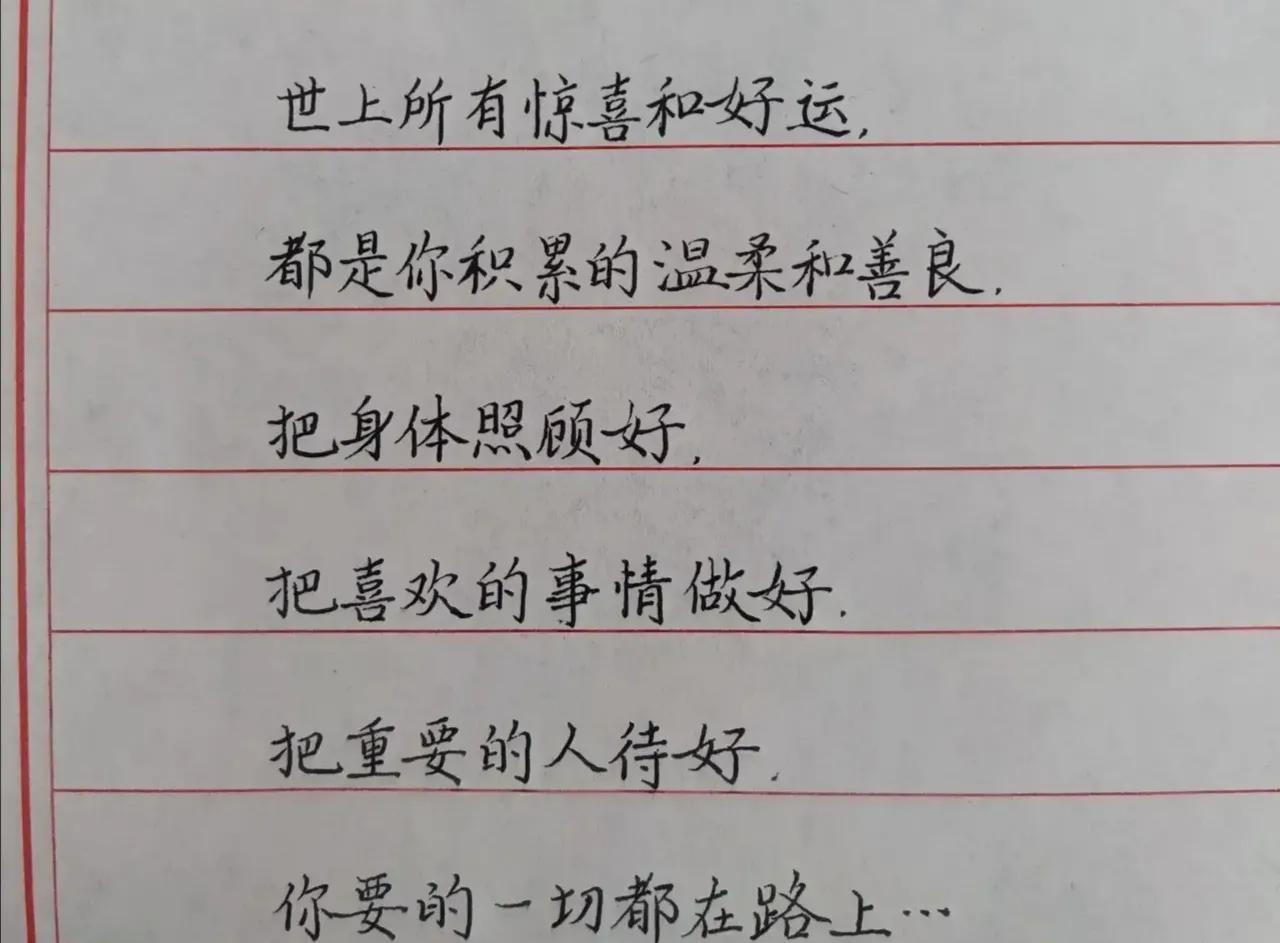 世上所有惊喜和好运,
都是你积累的温柔和善良.
把身体照顾好,
把喜欢的事情做好.
把重要的人待好.
你要的一切都在路上…